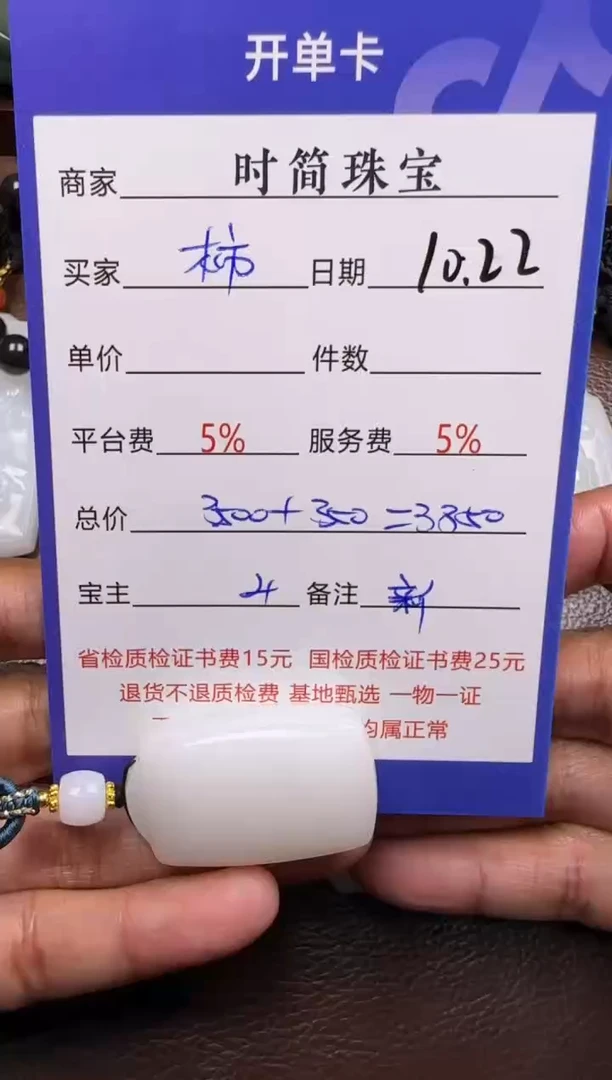 开单卡
商家 时简珠宝
买家 柿 日期 10.22
单价 件数
平台费 5% 服务费 5%
总价 3500+350=3850
宝主 4 备注 新
省检质检证书费15元 国检质检证书费25元
退货不退质检费 基地甄选 一物一证
均属正常